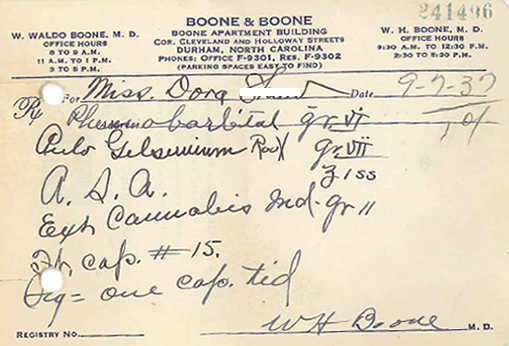 241496
BOONE & BOONE
BOONE APARTMENT BUILDING
COR. CLEVELAND AND HOLLOWAY STREETS
DURHAM, NORTH CAROLINA
PHONES: OFFICE F-9301, RES. F-9302
(PARKING SPACES EASY TO FIND)
W. WALDO BOONE, M. D.
OFFICE HOURS
8 TO 9 A.M.
11 A.M. TO 1 P.M.
3 TO 5 P.M.
W. H. BOONE, M. D.
OFFICE HOURS
9:30 A.M. TO 12:30 P.M.
2:30 TO 5:30 P.M.
For Miss. Dora Date 9-7-37
Rx Phennobarbital gr. VI
Gelsemium gr VII
A. S. A. ʒ iss
Ext Cannabis Ind. gr II
cap. # 15.
Sig = one cap. tid
W H Boone M. D.
REGISTRY NO.